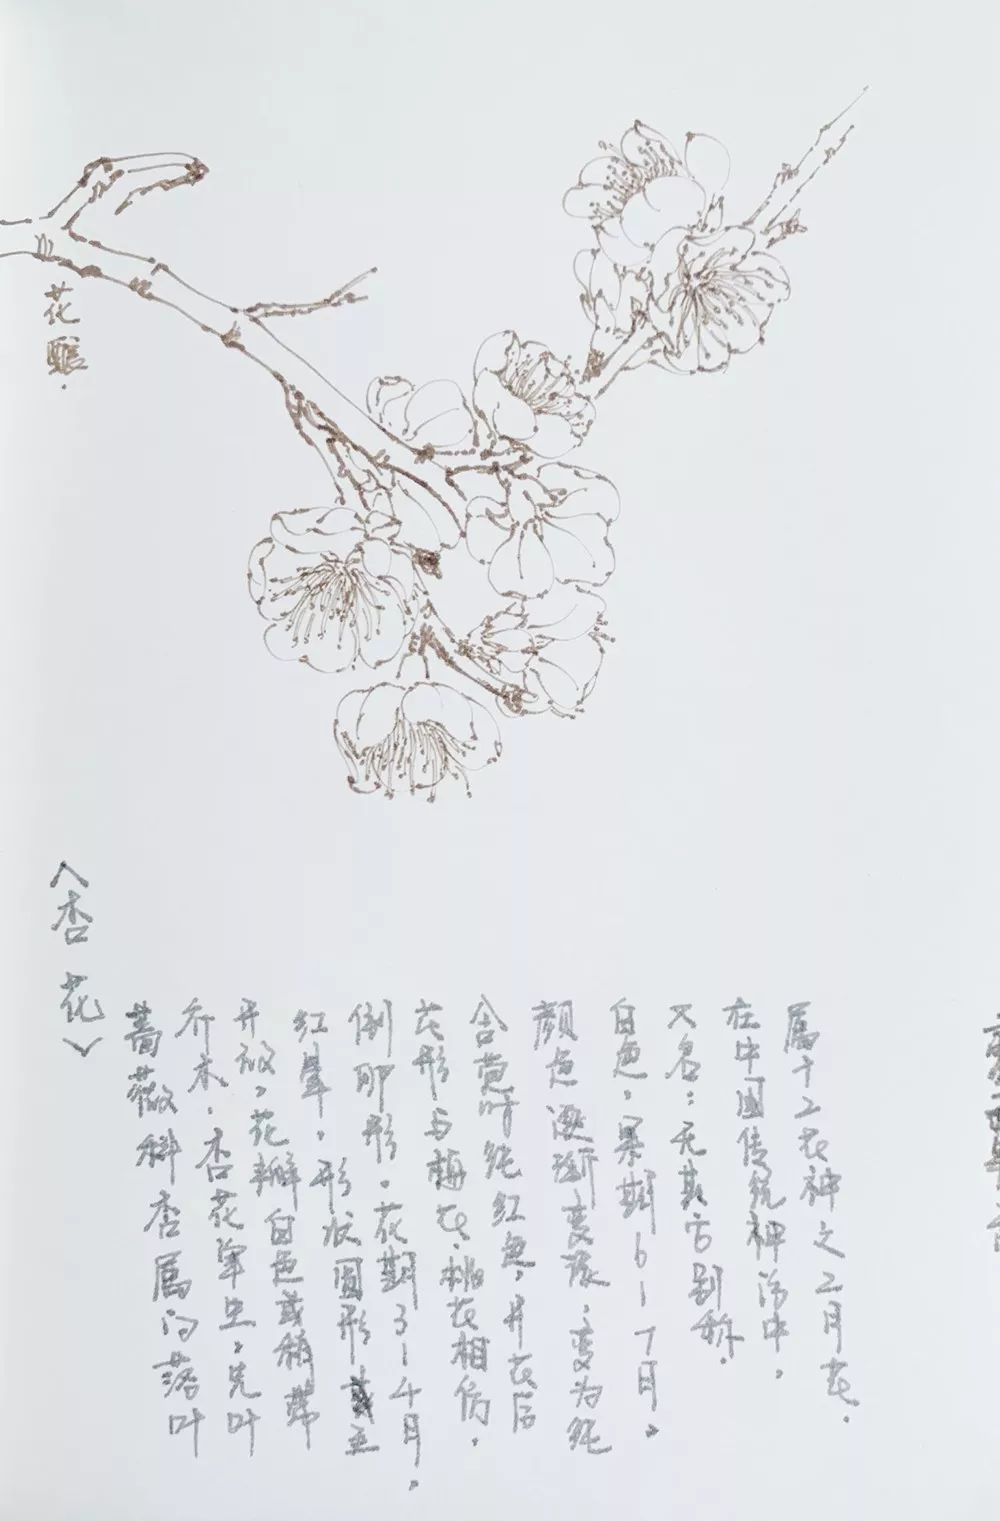 花
〈杏花〉
蔷薇科杏属的落叶
乔木，杏花单生，先叶
开放，花瓣白色或稍带
红晕，形状圆形或至
倒卵形。花期3-4月，
花形与梅花、桃花相仿，
含苞时纯红色，开花后
颜色逐渐变淡，变为纯
白色，果期6-7月。
又名：无其它别称。
在中国传统神话中，
属十二花神之二月花。